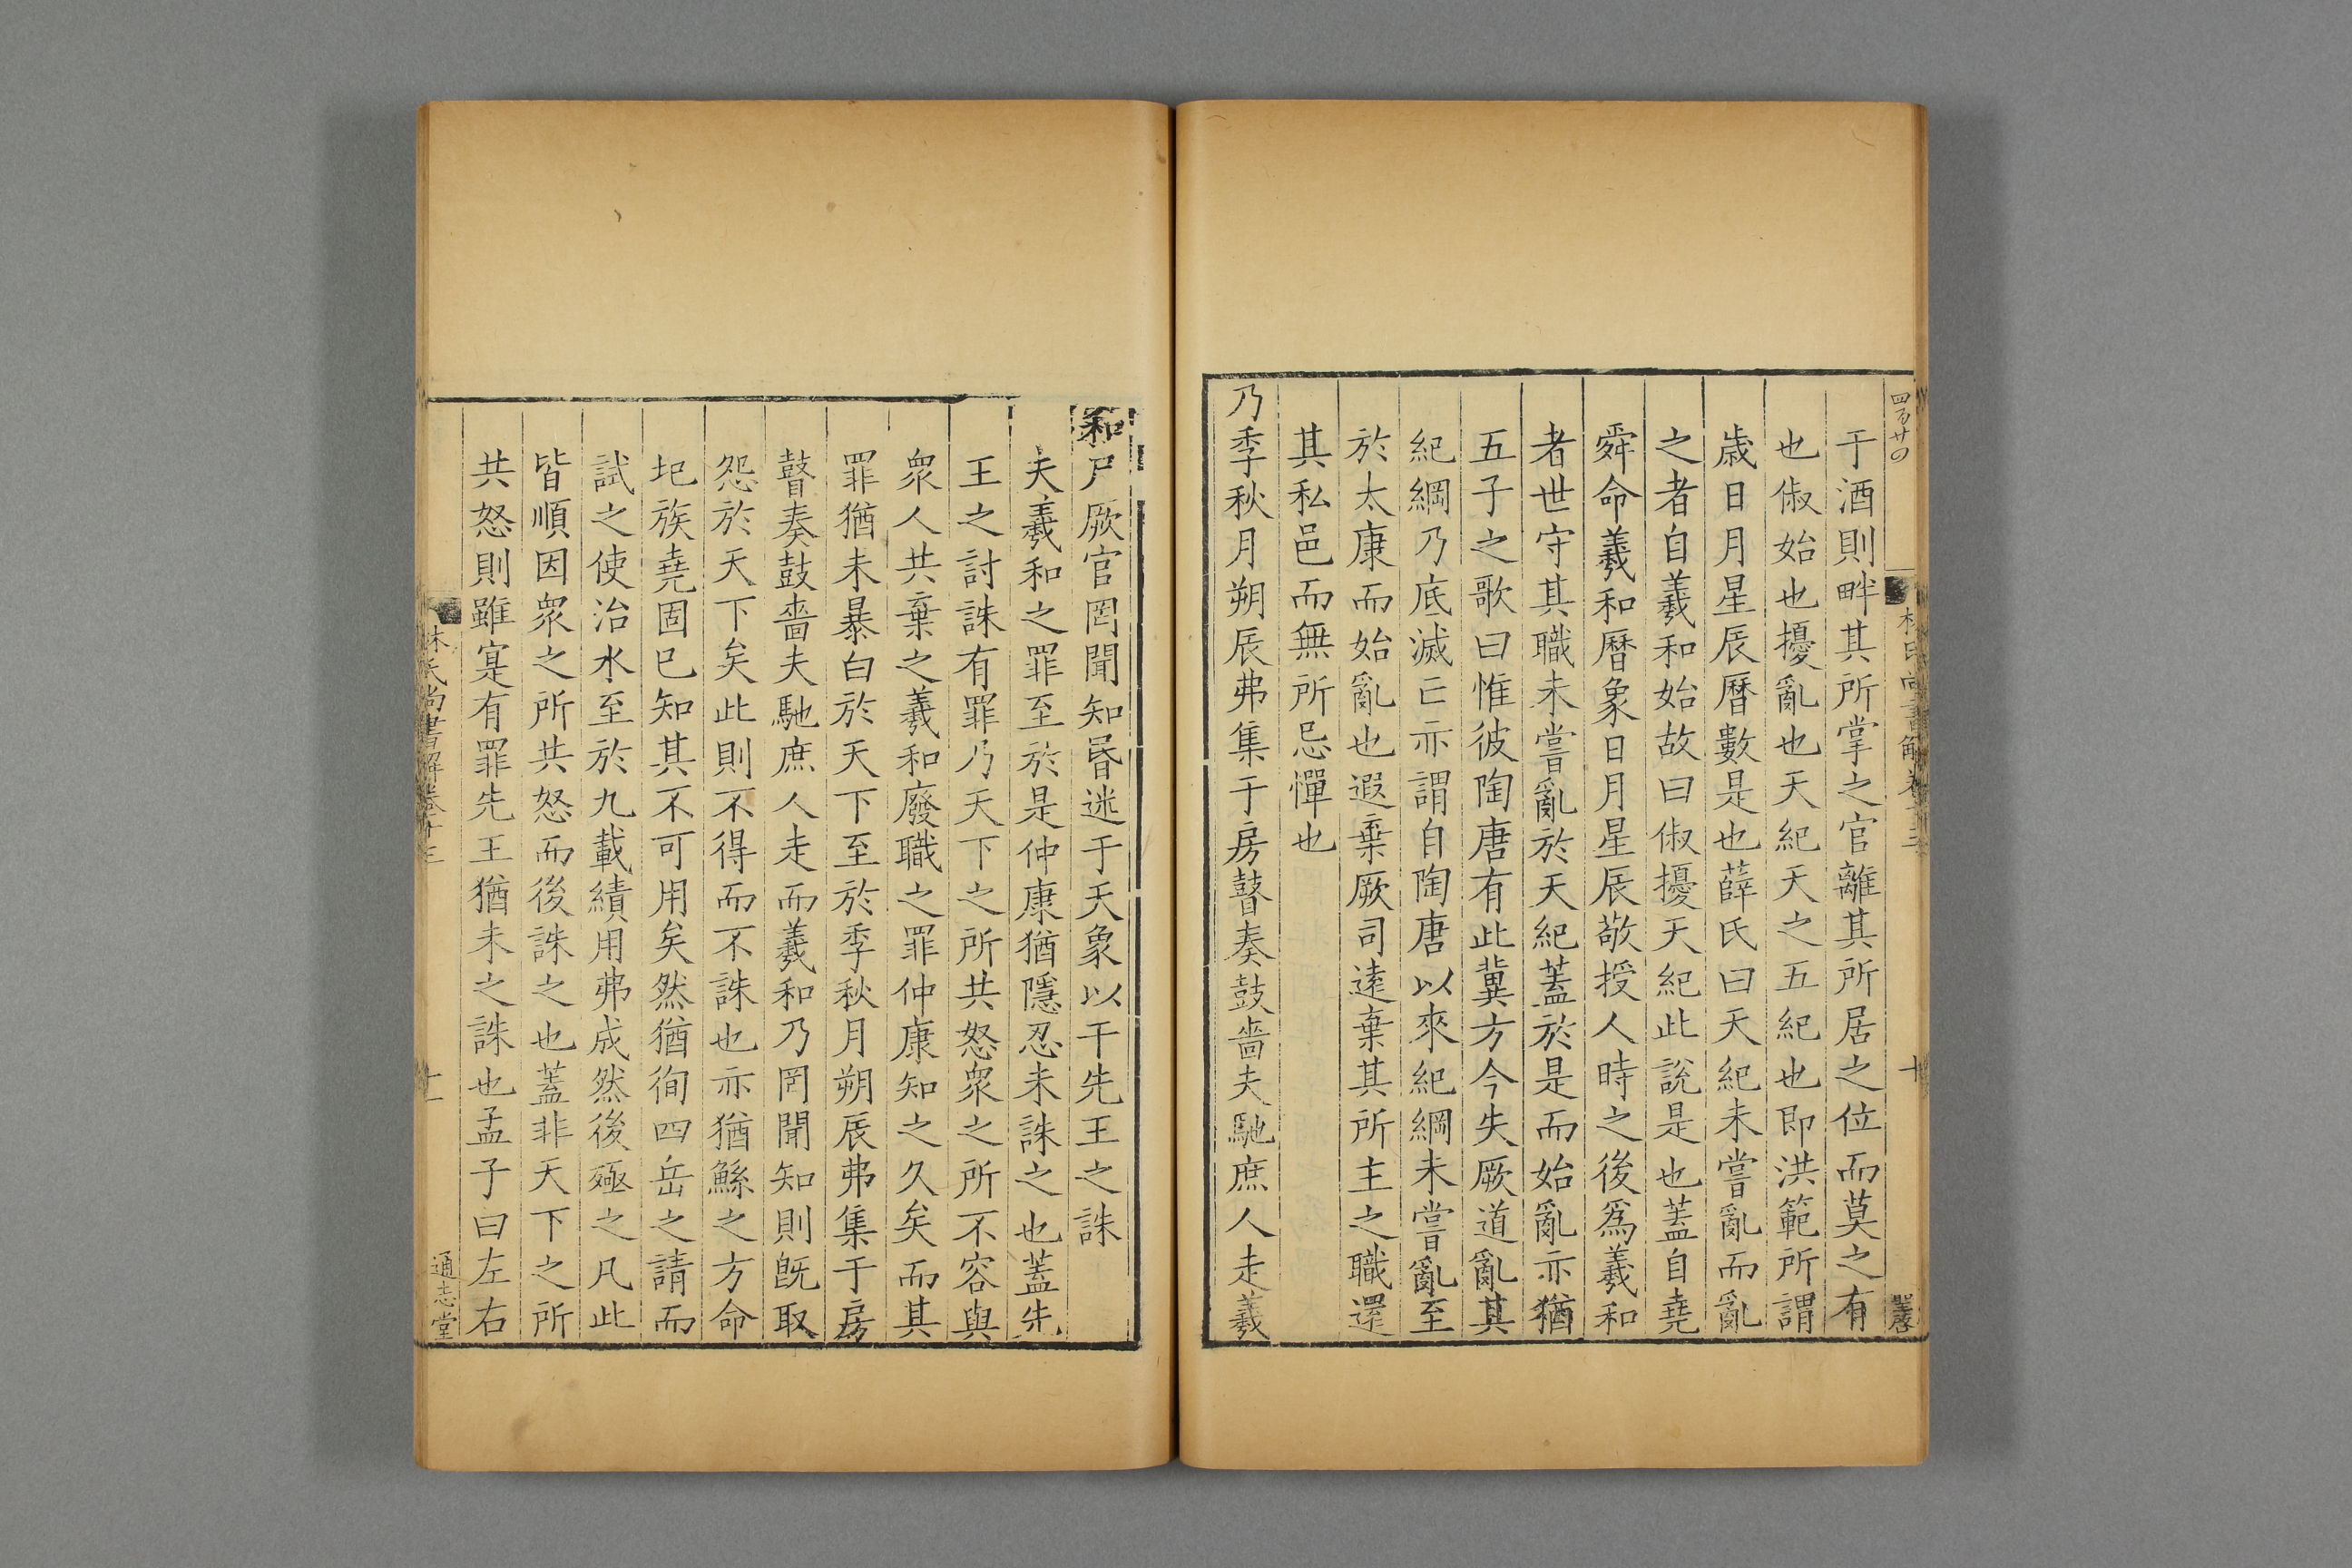 四百廿四
于酒則畔其所掌之官離其所居之位而莫之有
也俶始也擾亂也天紀天之五紀也即洪範所謂
歳日月星辰曆數是也薛氏曰天紀未嘗亂而亂
之者自羲和始故曰俶擾天紀此說是也蓋自堯
舜命羲和曆象日月星辰敬授人時之後爲羲和
者世守其職未嘗亂於天紀蓋於是而始亂亦猶
五子之歌曰惟彼陶唐有此冀方今失厥道亂其
紀綱乃底滅亡亦謂自陶唐以來紀綱未嘗亂至
於太康而始亂也遐棄厥司逺棄其所主之職還
其私邑而無所忌憚也
乃季秋月朔辰弗集于房瞽奏鼓嗇夫馳庶人走羲
和尸厥官罔聞知昏迷于天象以干先王之誅
夫羲和之罪至於是仲康猶隱忍未誅之也蓋先
王之討誅有罪乃天下之所共怒衆之所不容與
衆人共棄之羲和廢職之罪仲康知之久矣而其
罪猶未暴白於天下至於季秋月朔辰弗集于房
瞽奏鼓嗇夫馳庶人走而羲和乃罔聞知則旣取
怨於天下矣此則不得而不誅也亦猶鯀之方命
圮族堯固已知其不可用矣然猶徇四岳之請而
試之使治水至於九載績用弗成然後殛之凡此
皆順因衆之所共怒而後誅之也蓋非天下之所
共怒則雖寔有罪先王猶未之誅也孟子曰左右
林氏尚書解卷十三
十一
通志堂